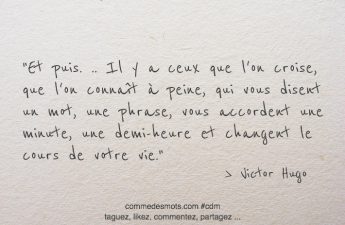 "Et puis. .. Il y a ceux que l'on croise,
que l'on connaît à peine, qui vous disent
un mot, une phrase, vous accordent une
minute, une demi-heure et changent le
cours de votre vie."
> Victor Hugo
commedesmots.com #cdm
taguez, likez, commentez, partagez ...